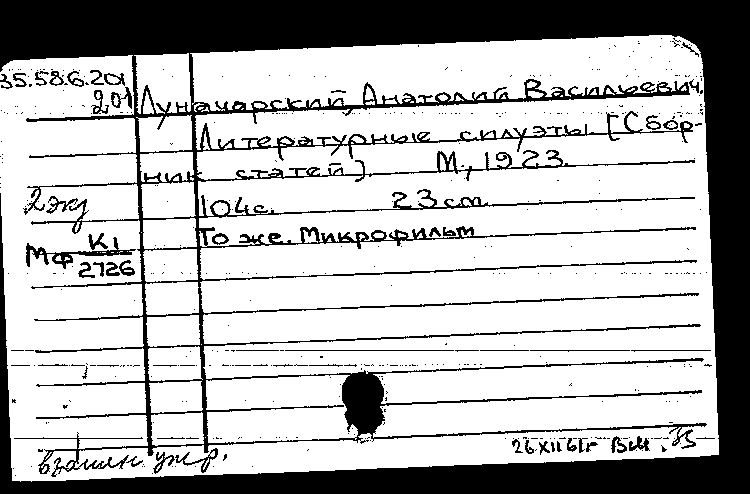 35.58.6.201
201 Луначарский, Анатолий Васильевич.
Литературные силуэты [Сбор-
ник статей]. М., 1923.
2 экз 104 с. 23 см
То же. Микрофильм
Мф К1/2726
взамен утр.
26 XII 61г